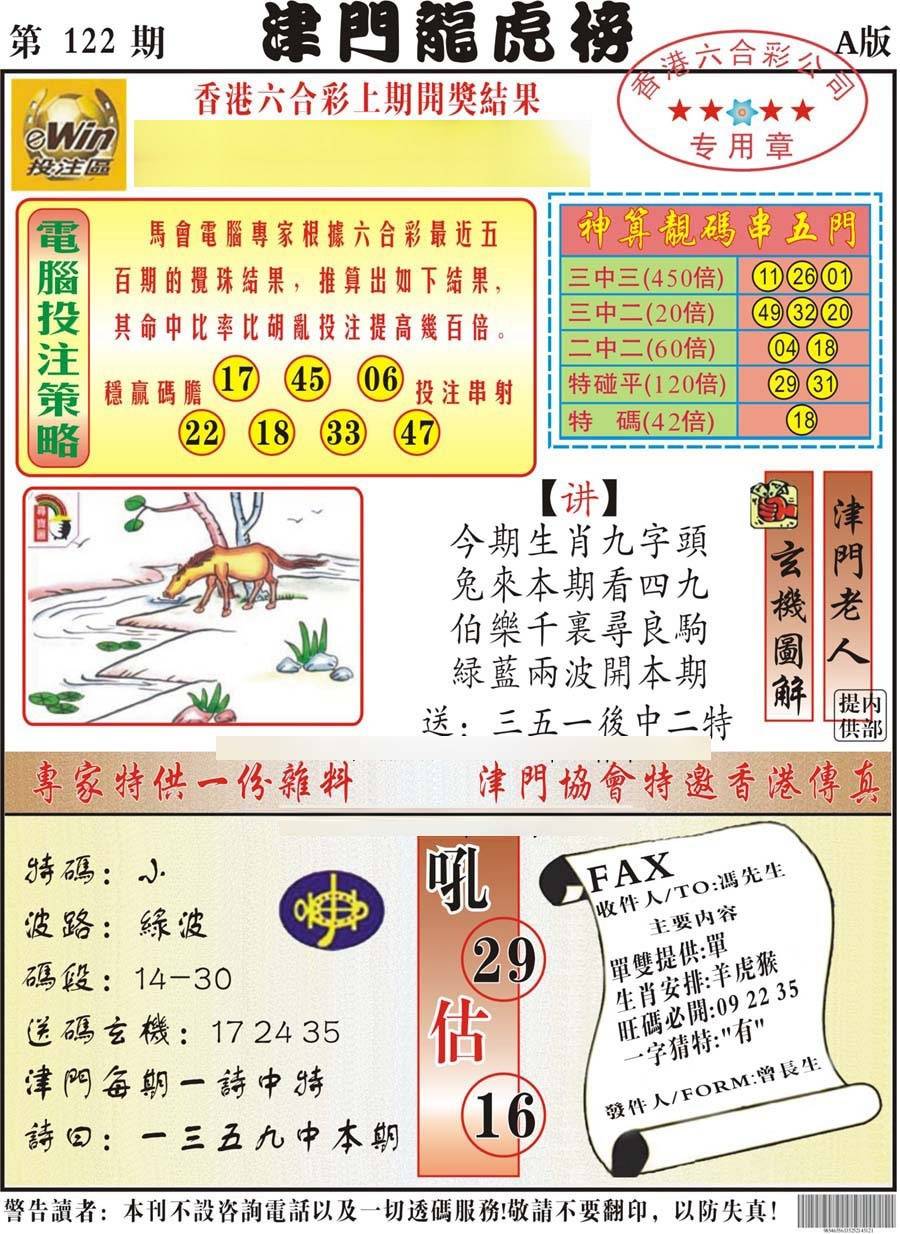 第 122 期
津門龍虎榜
A版
eWin
投注區
香港六合彩上期開獎結果
香港六合彩公司
专用章
電腦投注策略
馬會電腦專家根據六合彩最近五
百期的攪珠結果，推算出如下結果，
其命中比率比胡亂投注提高幾百倍。
穩贏碼膽 17 45 06 投注串射
22 18 33 47
神算靚碼串五門
三中三(450倍) 11 26 01
三中二(20倍) 49 32 20
二中二(60倍) 04 18
特碰平(120倍) 29 31
特 碼(42倍) 18
尋寶圖
【讲】
今期生肖九字頭
兔來本期看四九
伯樂千裏尋良駒
綠藍兩波開本期
送：三五一後中二特
玄機圖解
津門老人
内部提供
專家特供一份雜料
津門協會特邀香港傳真
特碼：小
波路：綠波
碼段：14-30
送碼玄機：17 24 35
津門每期一詩中特
詩曰：一三五九中本期
吼
29
估
16
FAX
收件人/TO:馮先生
主要内容
單雙提供:單
生肖安排:羊虎猴
旺碼必開:09 22 35
一字猜特:"有"
發件人/FORM:曾長生
警告讀者：本刊不設咨詢電話以及一切透碼服務!敬請不要翻印，以防失真！